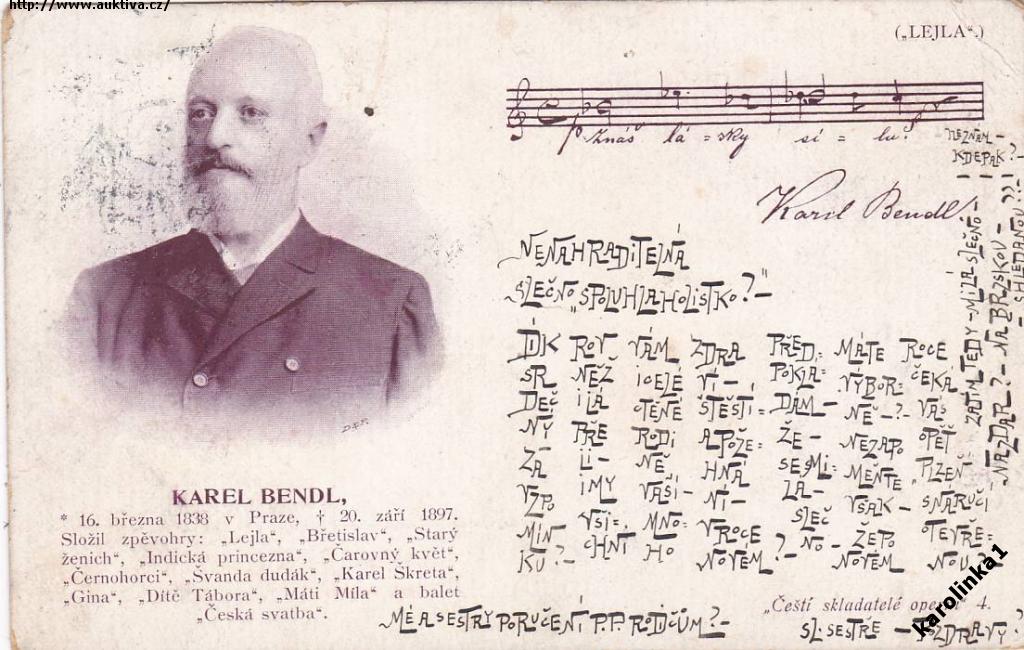 http://www.auktiva.cz/
(„LEJLA“.)
Znáš lá-sky sí-lu?
NEZNÁM-
KDEPAK?-
Karel Bendl
NENAHRADITELNÁ
SLEČNO „SPOLUHLAHOLISTKO?-"
DÍK ROV VÁM ZDRA PŘED, MÁTE ROCE
SR NĚŽ I CELÉ VÍ- POKLÁ- VÝBOR- ČEKÁ
DEČ I LÁ CTĚNÉ ŠTĚSTÍ- DÁM- NĚ-?- VÁS
NÝ PŘE RODI A POŽE- ŽE- NEZAPO OPĚT
ZA JI- NĚ HNÁ SE MI- MEŇTE PLZEŇ-
VZPO IMY VAŠÍ- NÍ- LÁ- VŠAK- S NÁRUČÍ
MÍN VŠI- MNO- V ROCE SLEČ ŽEPO OTEVŘE-
KU?- CHNI HO NOVÉM?- NO- NOVÉM NOU?-
ZATÍM TEDY-MILÁ SLEČNO-
NAZDAR?-NA BRZSKOU-
SHLEDANOU?!-
D.E.P.
KAREL BENDL,
* 16. března 1838 v Praze, † 20. září 1897.
Složil zpěvohry: „Lejla“, „Břetislav“, „Starý
ženich“, „Indická princezna“, „Čarovný květ“,
„Černohorci“, „Švanda dudák“, „Karel Škreta“,
„Gina“, „Dítě Tábora“, „Máti Míla“ a balet
„Česká svatba“.
„Čeští skladatelé oper“ 4.
MÉ A SESTRY PORUČENÍ P.P. RODIČŮM?-
SL. SESTŘE - POZDRAVY?
karolinka1